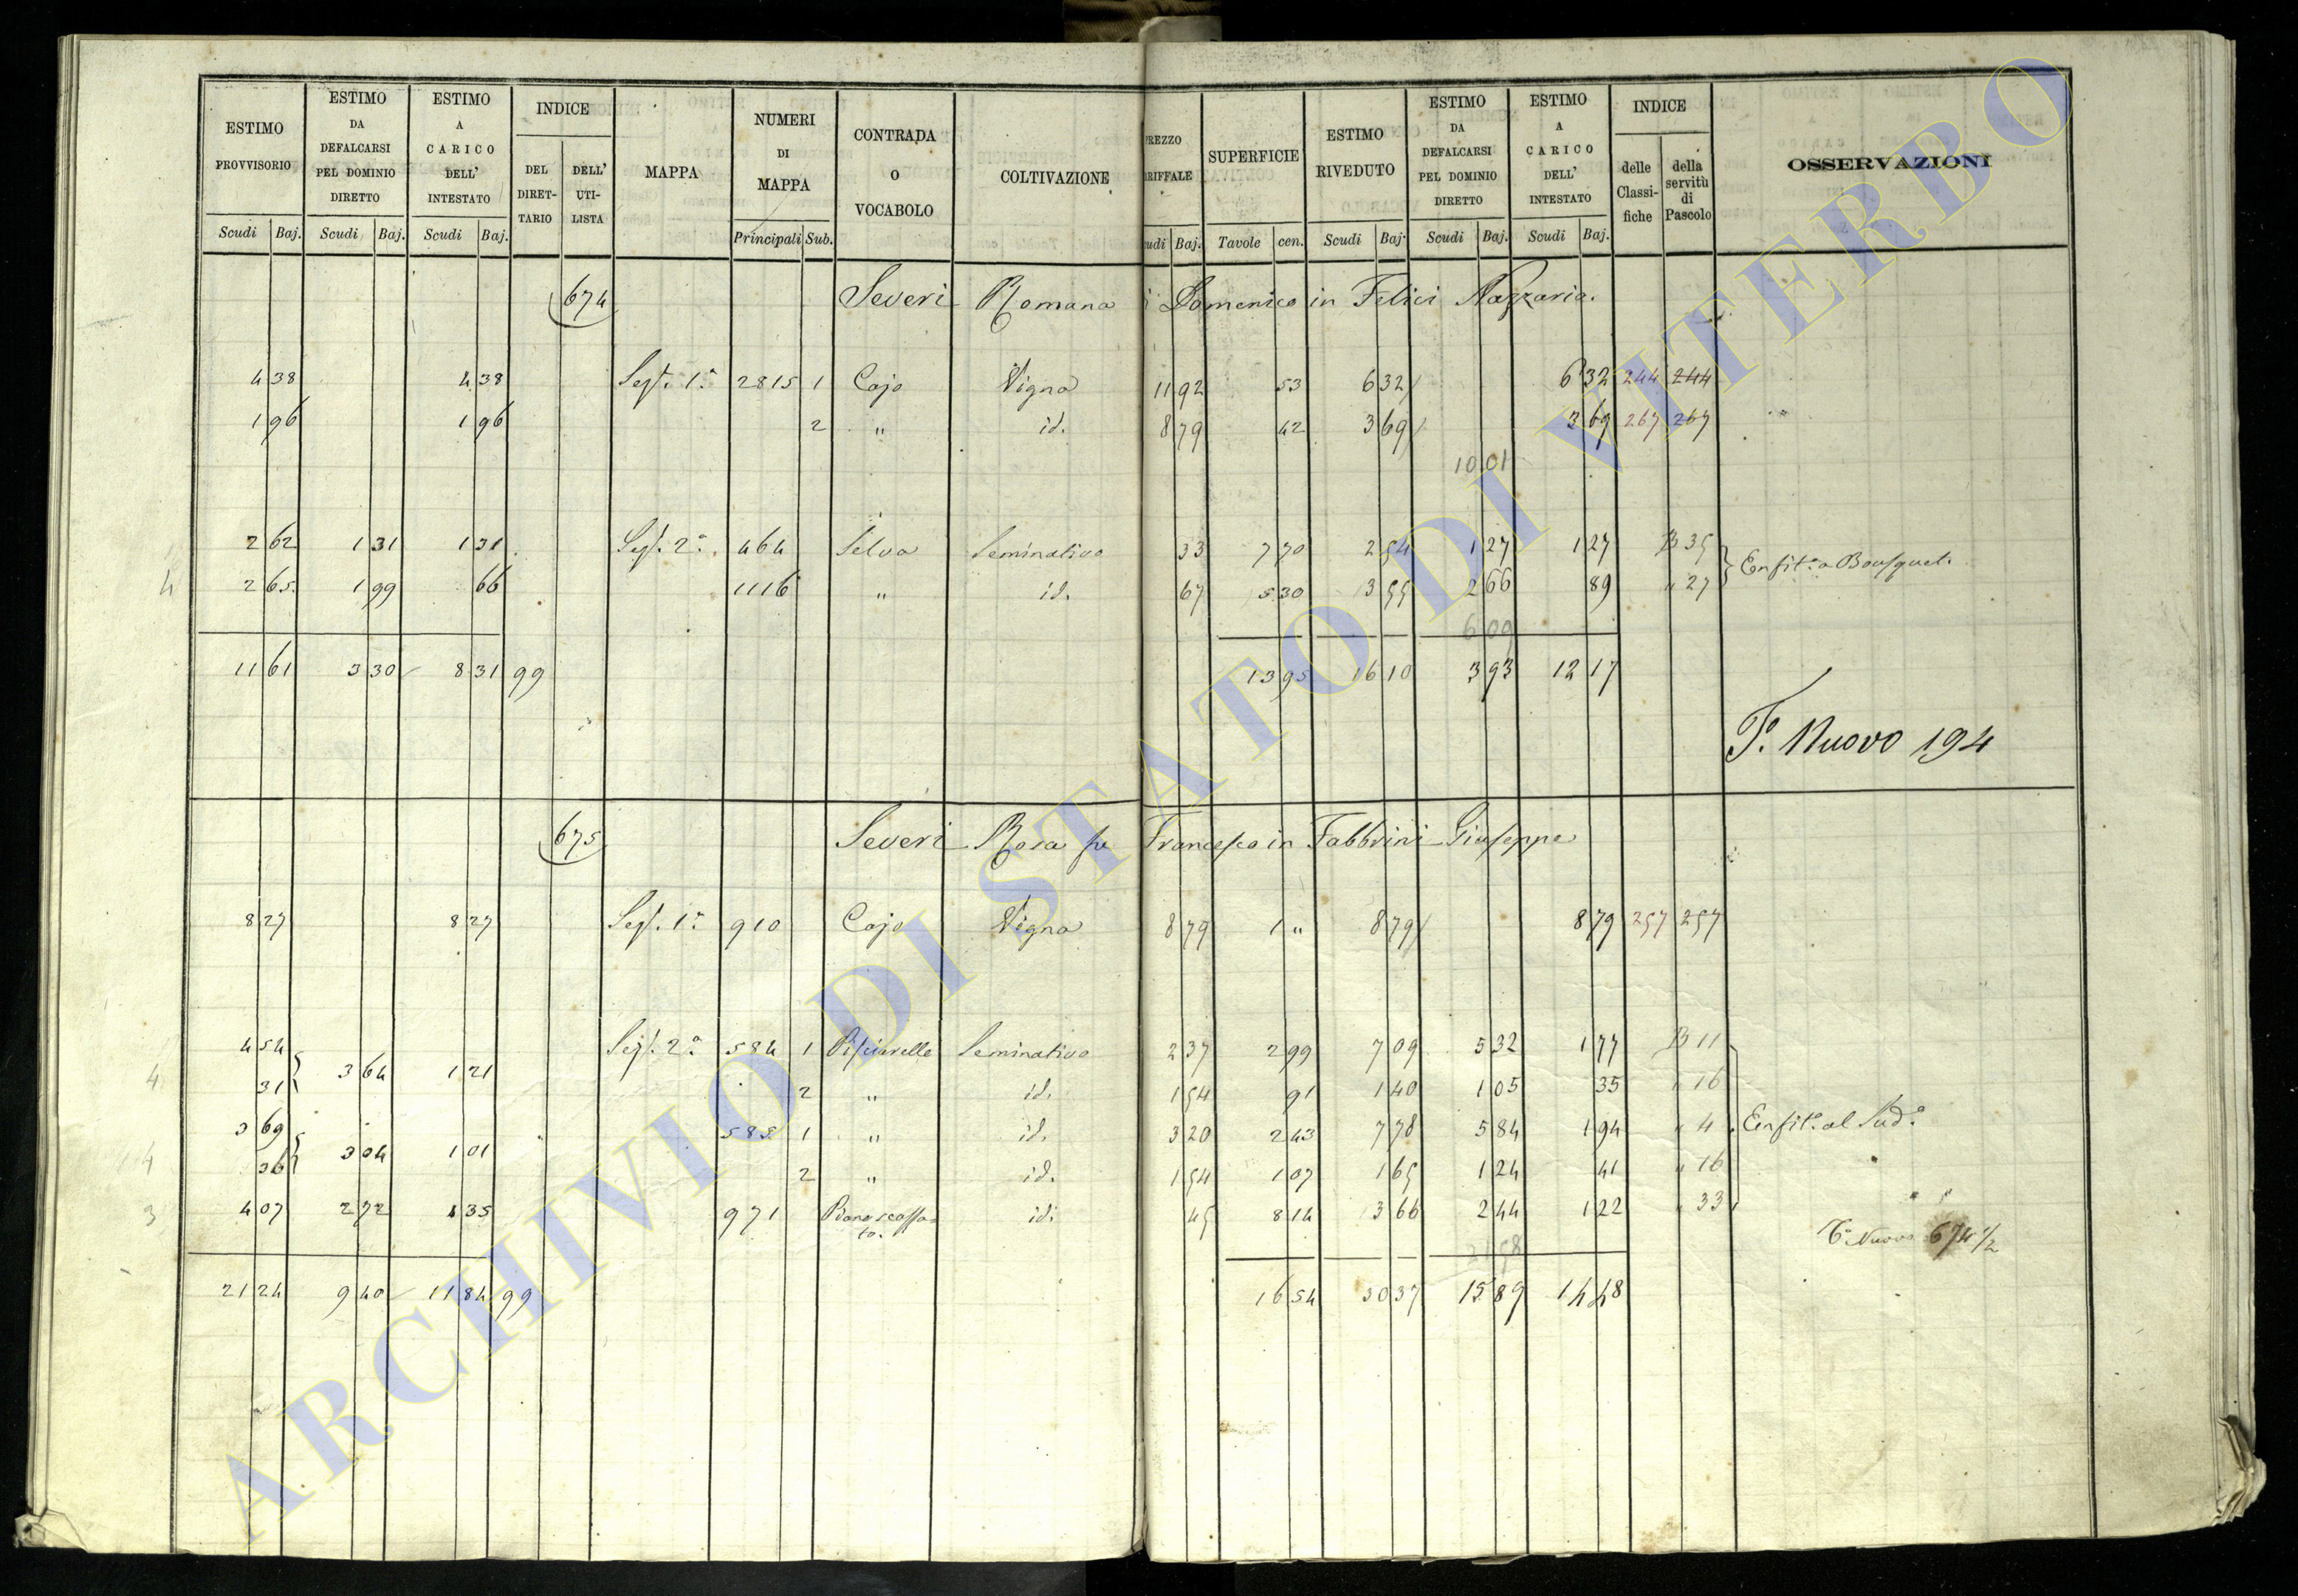 ESTIMO PROVVISORIO | ESTIMO DA DEFALCARSI PEL DOMINIO DIRETTO | ESTIMO A CARICO DELL' INTESTATO | INDICE | MAPPA | NUMERI DI MAPPA | CONTRADA O VOCABOLO | COLTIVAZIONE | REZZO RIFFALE | SUPERFICIE | ESTIMO RIVEDUTO | ESTIMO DA DEFALCARSI PEL DOMINIO DIRETTO | ESTIMO A CARICO DELL' INTESTATO | INDICE | OSSERVAZIONI
DEL DIRET- TARIO | DELL' UTI- LISTA | delle Classi- fiche | della servitù di Pascolo
Scudi | Baj. | Scudi | Baj. | Scudi | Baj. | Principali | Sub. | udi | Baj. | Tavole | cen. | Scudi | Baj. | Scudi | Baj. | Scudi | Baj.
674 Severi Romana di Domenico in Felici Nazzario.
4 38 | 4 38 | Sez. 1ª | 2815 | 1 | Cajo | Vigna | 11 92 | 53 | 6 32 | 6 32 | 244 | 244
1 96 | 1 96 | 2 | " | id. | 8 79 | 42 | 3 69 | 3 69 | 267 | 267
10 01
2 62 | 1 31 | 1 31 | Sez. 2ª | 464 | Selva | Seminativo | 33 | 7 70 | 2 54 | 1 27 | 1 27 | B 35 | Enfit. a Bousquet.
4 | 2 65 | 1 99 | 66 | 1116 | " | id. | 67 | 5 30 | 3 55 | 2 66 | 89 | " 27
6 09
11 61 | 3 30 | 8 31 | 99 | 13 95 | 16 10 | 3 93 | 12 17
T° Nuovo 194
675 Severi Rosa fu Francesco in Fabbrini Giuseppe
8 27 | 8 27 | Sez. 1ª | 910 | Cajo | Vigna | 8 79 | 1 " | 8 79 | 8 79 | 257 | 257
4 54 | Sez. 2ª | 584 | 1 | Pisciarelle | Seminativo | 2 37 | 2 99 | 7 09 | 5 32 | 1 77 | B 11
4 | 31 | 3 64 | 1 21 | 2 | " | id. | 1 54 | 91 | 1 40 | 1 05 | 35 | " 16
3 69 | 585 | 1 | " | id. | 3 20 | 2 43 | 7 78 | 5 84 | 1 94 | " 4 | Enfit. al Sud°
4 | 36 | 3 04 | 1 01 | 2 | " | id. | 1 54 | 1 07 | 1 65 | 1 24 | 41 | " 16
3 | 4 07 | 2 72 | 1 35 | 971 | id. | 45 | 8 14 | 3 66 | 2 44 | 1 22 | " 33
T° Nuovo 674 1/2
21 24 | 9 40 | 11 84 | 99 | 16 54 | 30 37 | 15 89 | 14 48
ARCHIVIO DI STATO DI VITERBO